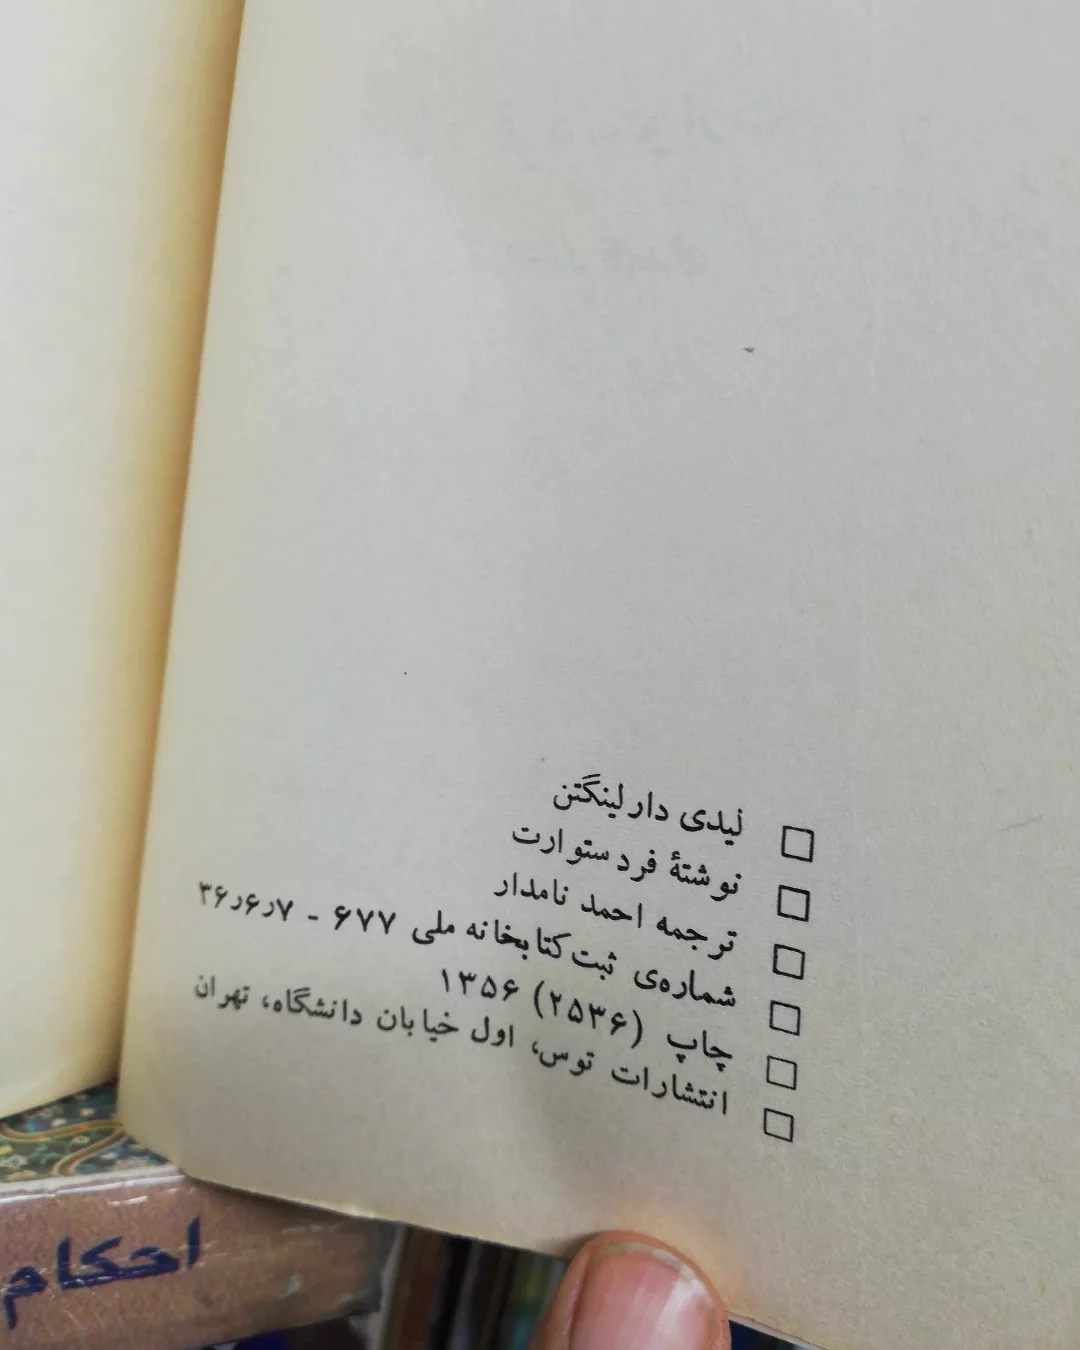 □ لیدی دارلینگتن
□ نوشتهٔ فرد ستوارت
□ ترجمه احمد نامدار
□ شماره‌ی ثبت کتابخانه ملی ۶۷۷ - ۳۶٫۶٫۷
□ چاپ (۲۵۳۶) ۱۳۵۶
□ انتشارات توس، اول خیابان دانشگاه، تهران
احکام